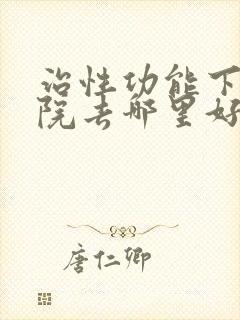 治性功能下
院去哪里好
唐仁卿